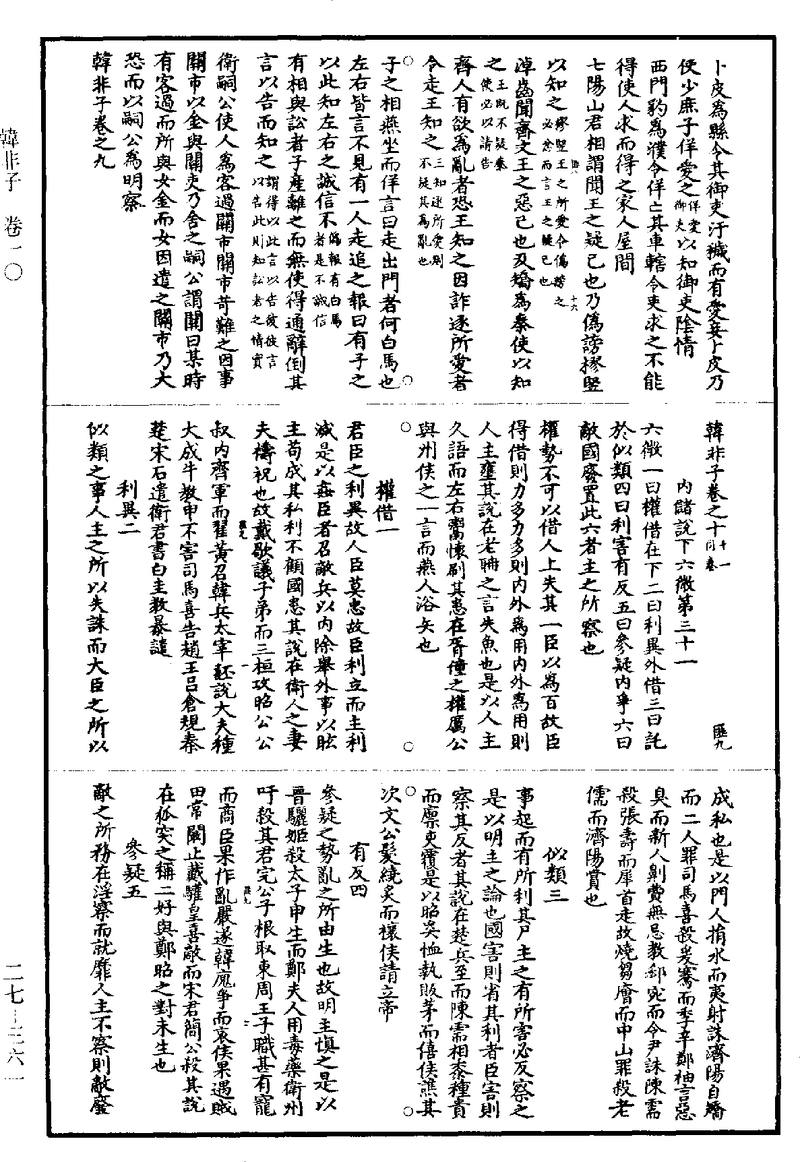 卜皮為縣令其御吏汙穢而有愛妾卜皮乃
使少庶子佯愛之佯愛御吏以知御吏陰情
西門豹為濮令佯亡其車轄令吏求之不能
得使人求而得之家人屋間
七陽山君相謂聞王之疑己也乃偽謗樛豎
以知之樛豎王之所愛令偽謗之必忿而言王之疑己也
淖齒聞齊文王之惡己也及矯為秦使以知
之王既不疑秦使必以請告
齊人有欲為亂者恐王知之因詐逐所愛者
令走王知之三知逐所愛則不疑其為亂也
子之相燕坐而佯言曰走出門者何白馬也
左右皆言不見有一人走追之報曰有子之
以此知左右之誠信不偽報有白馬者是不誠信
有相與訟者子產離之而無使得通辭倒其
言以告而知之謂得以此言以告彼彼言以名此則知訟者之情實
衛嗣公使人為客過關市關市苛難之因事
關市以金與關吏乃舍之嗣公謂關曰某時
有客過而所與女金而女因遣之關市乃大
恐而以嗣公為明察
韓非子卷之九
韓非子卷之十十一同卷 匪九
內儲說下六微第三十一
六微一曰權借在下二曰利異外借三曰託
於似類四曰利害有反五曰參疑內爭六曰
敵國廢置此六者主之所察也
權勢不可以借人上失其一臣以為百故臣
得借則力多力多則內外為用內外為用則
人主壅其說在老聃之言失魚也是以人主
久語而左右鬻懷刷其患在胥僮之權厲公
與州侯之一言而燕人浴矢也
權借一
君臣之利異故人臣莫忠故臣利立而主利
減是以姦臣者召敵兵以內除舉外事以眩
主苟成其私利不顧國患其說在衛人之妻
夫禱祝也故戴歇議子弟而三桓攻昭公公
叔內齊軍而翟黃召韓兵太宰嚭說大夫種
大成牛教申不害司馬喜告趙王呂倉規秦
楚宋石遺衛君書白圭教暴譴
利異二
似類之事人主之所以失誅而大臣之所以
成私也是以門人捐水而夷射誅濟陽自矯
而二人罪司馬喜殺爰騫而季辛鄭袖言惡
臭而新人劓費無忌教郄宛而令尹誅陳需
殺張壽而犀首走故燒芻廥而中山罪殺老
儒而濟陽賞也
似類三
事起而有所利其尸主之有所害必反察之
是以明主之論也國害則省其利者臣害則
察其反者其說在楚兵至而陳需相黍種貴
而廩吏覆是以昭奚恤執販茅而僖侯譙其
次文公髮繞炙而穰侯請立帝
有反四
參疑之勢亂之所由生也故明主慎之是以
晉驪姬殺太子申生而鄭夫人用毒藥衛州
吁殺其君完公子根取東周王子職甚有寵
而商臣果作亂嚴遂韓廆爭而哀侯果遇賊
田常闞止戴驩皇喜敵而宋君簡公殺其說
在狐突之稱二好與鄭昭之對未生也
參疑五
敵之所務在淫察而就靡人主不察則敵廢
韓非子 卷一〇
二七—三六一